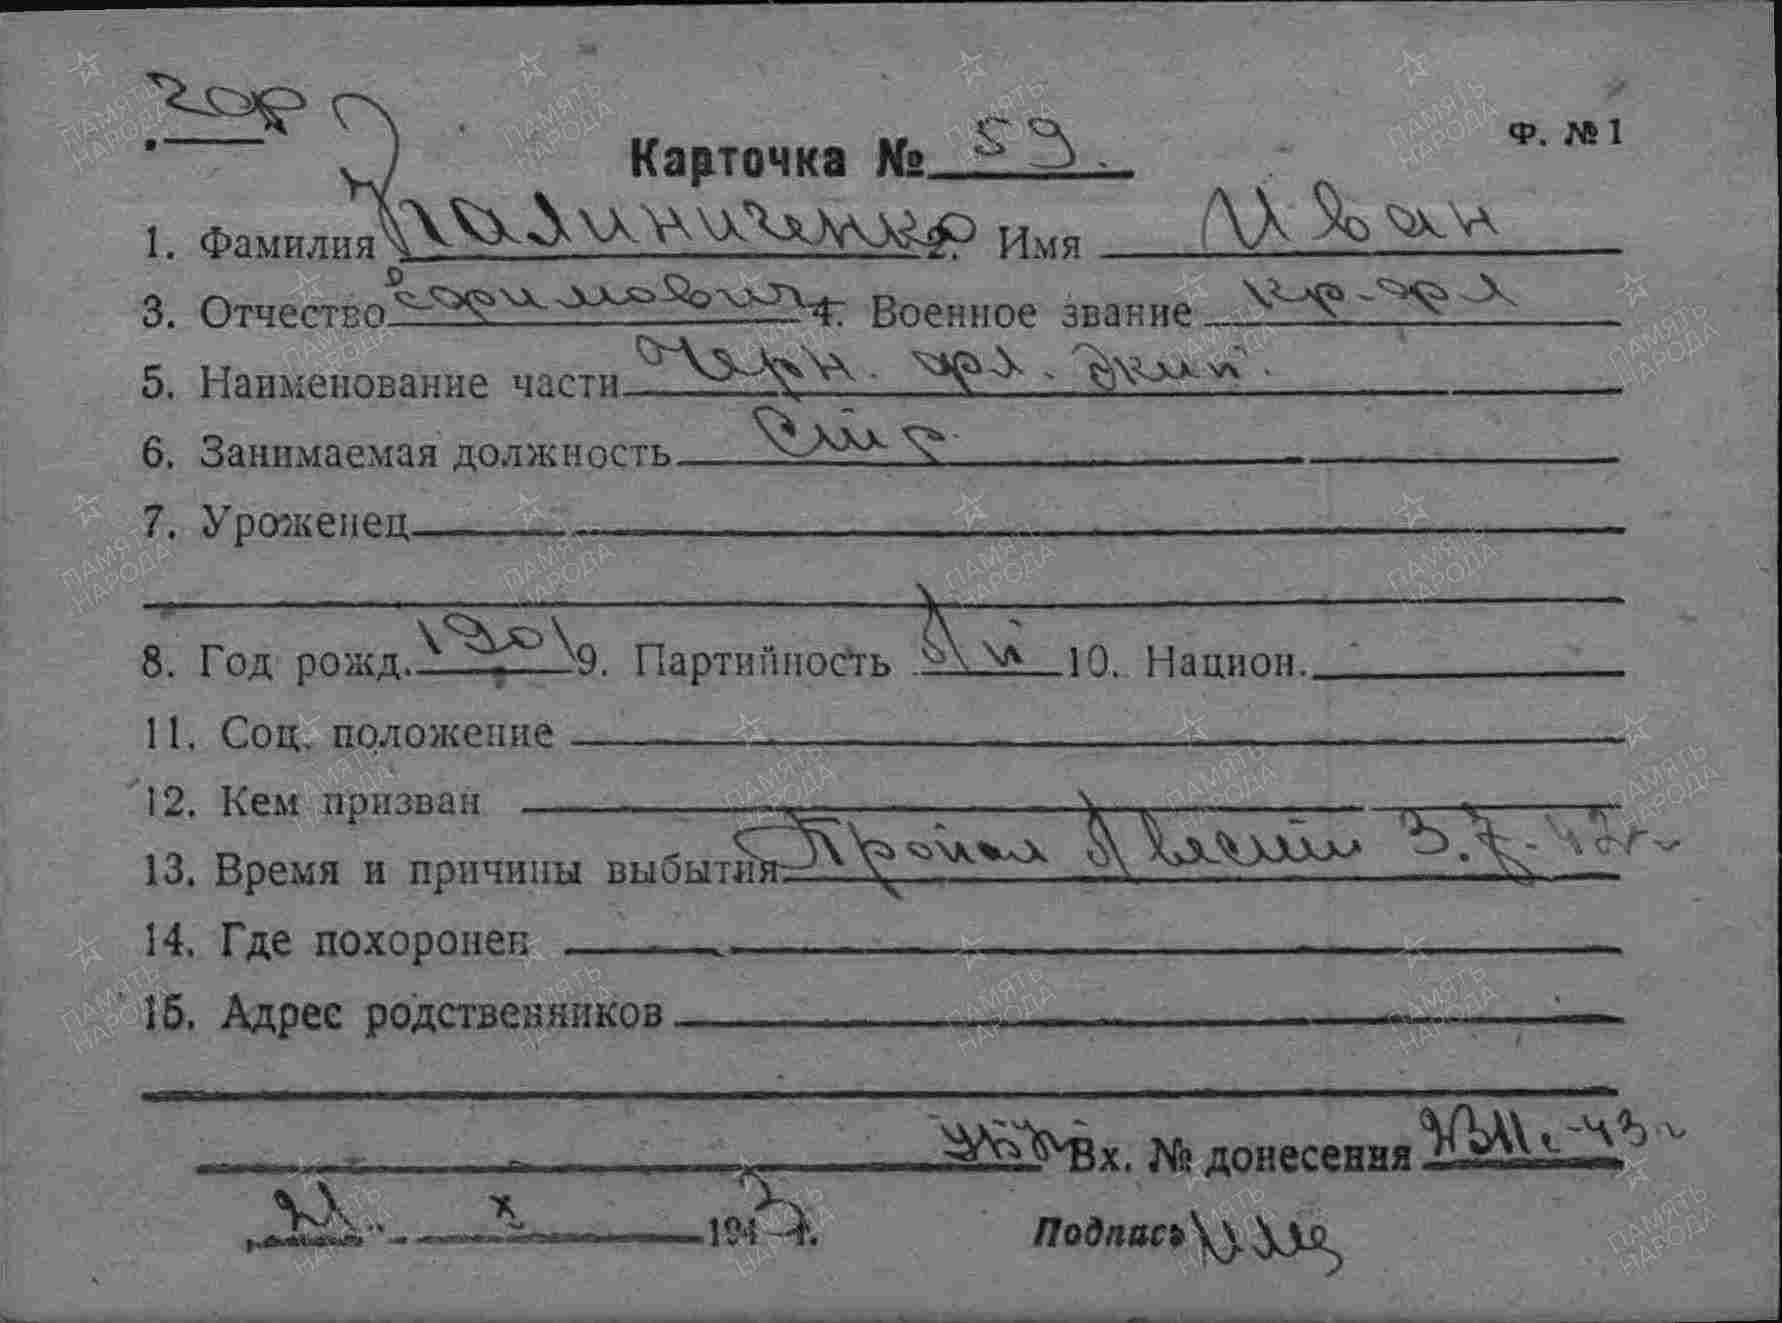 Карточка № 59.
Ф. № 1
1. Фамилия Калиниченко 2. Имя Иван
3. Отчество Ефимович 4. Военное звание кр-фл
5. Наименование части Черн. фл. Экип.
6. Занимаемая должность Стр
7. Уроженец
8. Год рожд. 1901 9. Партийность б/п 10. Национ.
11. Соц. положение
12. Кем призван
13. Время и причины выбытия Пропал б/вести 3.7.42г
14. Где похоронен
15. Адрес родственников
Вх. № донесения -43г
21 X 1943г.
Подпись
ПАМЯТЬ НАРОДА